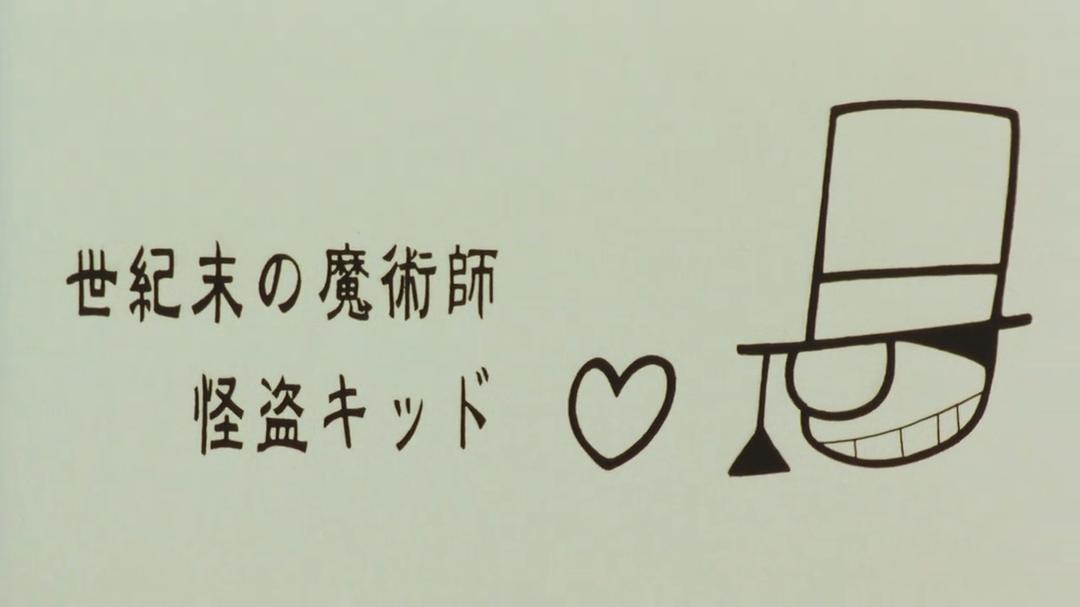 世紀末の魔術師
怪盗キッド